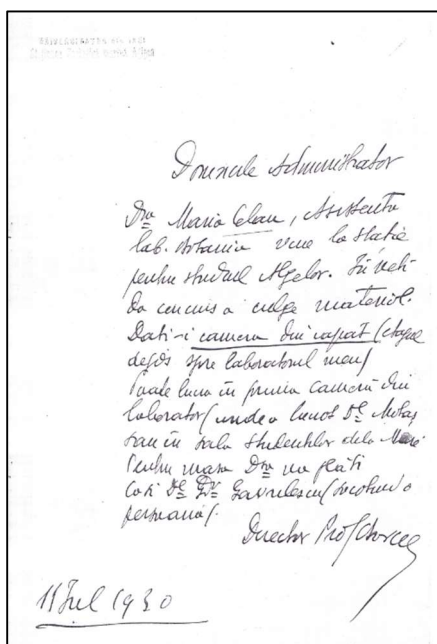 UNIVERSITATEA DIN IASI
Domnule Administrator
Dra Maria Celan, Assistentă
lab. Botanic vine la stație
pentru studiul Algelor. Îi veți
da concurs a culege material.
Dați-i camera din capăt (etajul
de jos spre laboratorul meu)
Poate lucra în prima cameră din
laborator (unde a lucrat Dl Motaș
sau în sala studenților dela Mare
Pentru masă Dra va plăti
cât Dl Gavrilescu (socotind o
persoană).
Director Prof Borcea
11 Iul 1930